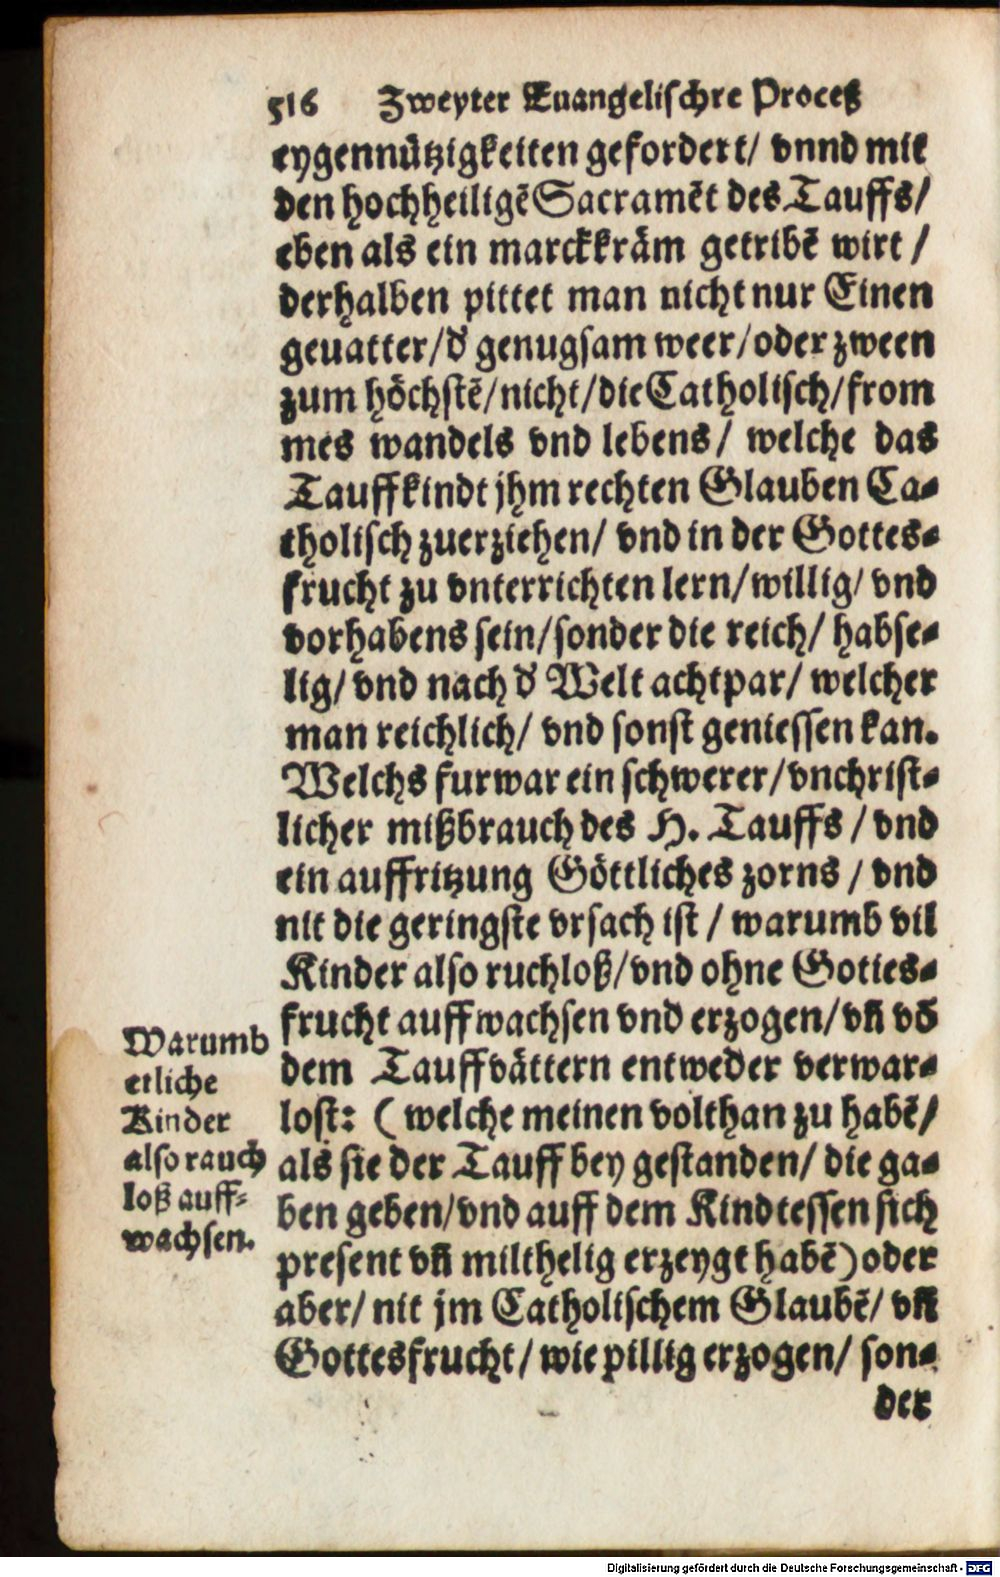 516 Zweyter Euangelischre Proceß
eygennützigkeiten gefordert/ vnnd mit
den hochheiligē Sacramēt des Tauffs/
eben als ein marckkräm getribē wirt /
derhalben pittet man nicht nur Einen
geuatter/ď genugsam weer/oder zween
zum höchstē/nicht/die Catholisch/from
mes wandels vnd lebens/ welche das
Tauffkindt jhm rechten Glauben Ca-
tholisch zuerziehen/ vnd in der Gottes-
frucht zu vnterrichten lern/willig/ vnd
vorhabens sein/sonder die reich/ habse-
lig/ vnd nach ď Welt achtpar/ welcher
man reichlich/ vnd sonst geniessen kan.
Welchs furwar ein schwerer/vnchrist-
licher mißbrauch des H. Tauffs / vnd
ein auffritzung Göttliches zorns / vnd
nit die geringste vrsach ist / warumb vil
Kinder also ruchloß/vnd ohne Gottes-
frucht auffwachsen vnd erzogen/vn̄ vō
dem Tauffvättern entweder verwar-
lost: ( welche meinen volthan zu habē/
als sie der Tauff bey gestanden/ die ga-
ben geben/vnd auff dem Kindtessen sich
present vn̄ milthelig erzeygt habē) oder
aber/ nit jm Catholischem Glaubē/ vn̄
Gottesfrucht/ wie pillig erzogen/ son-
der
Warumb
etliche
Kinder
also rauch
loß auff-
wachsen.
Digitalisierung gefördert durch die Deutsche Forschungsgemeinschaft - DFG